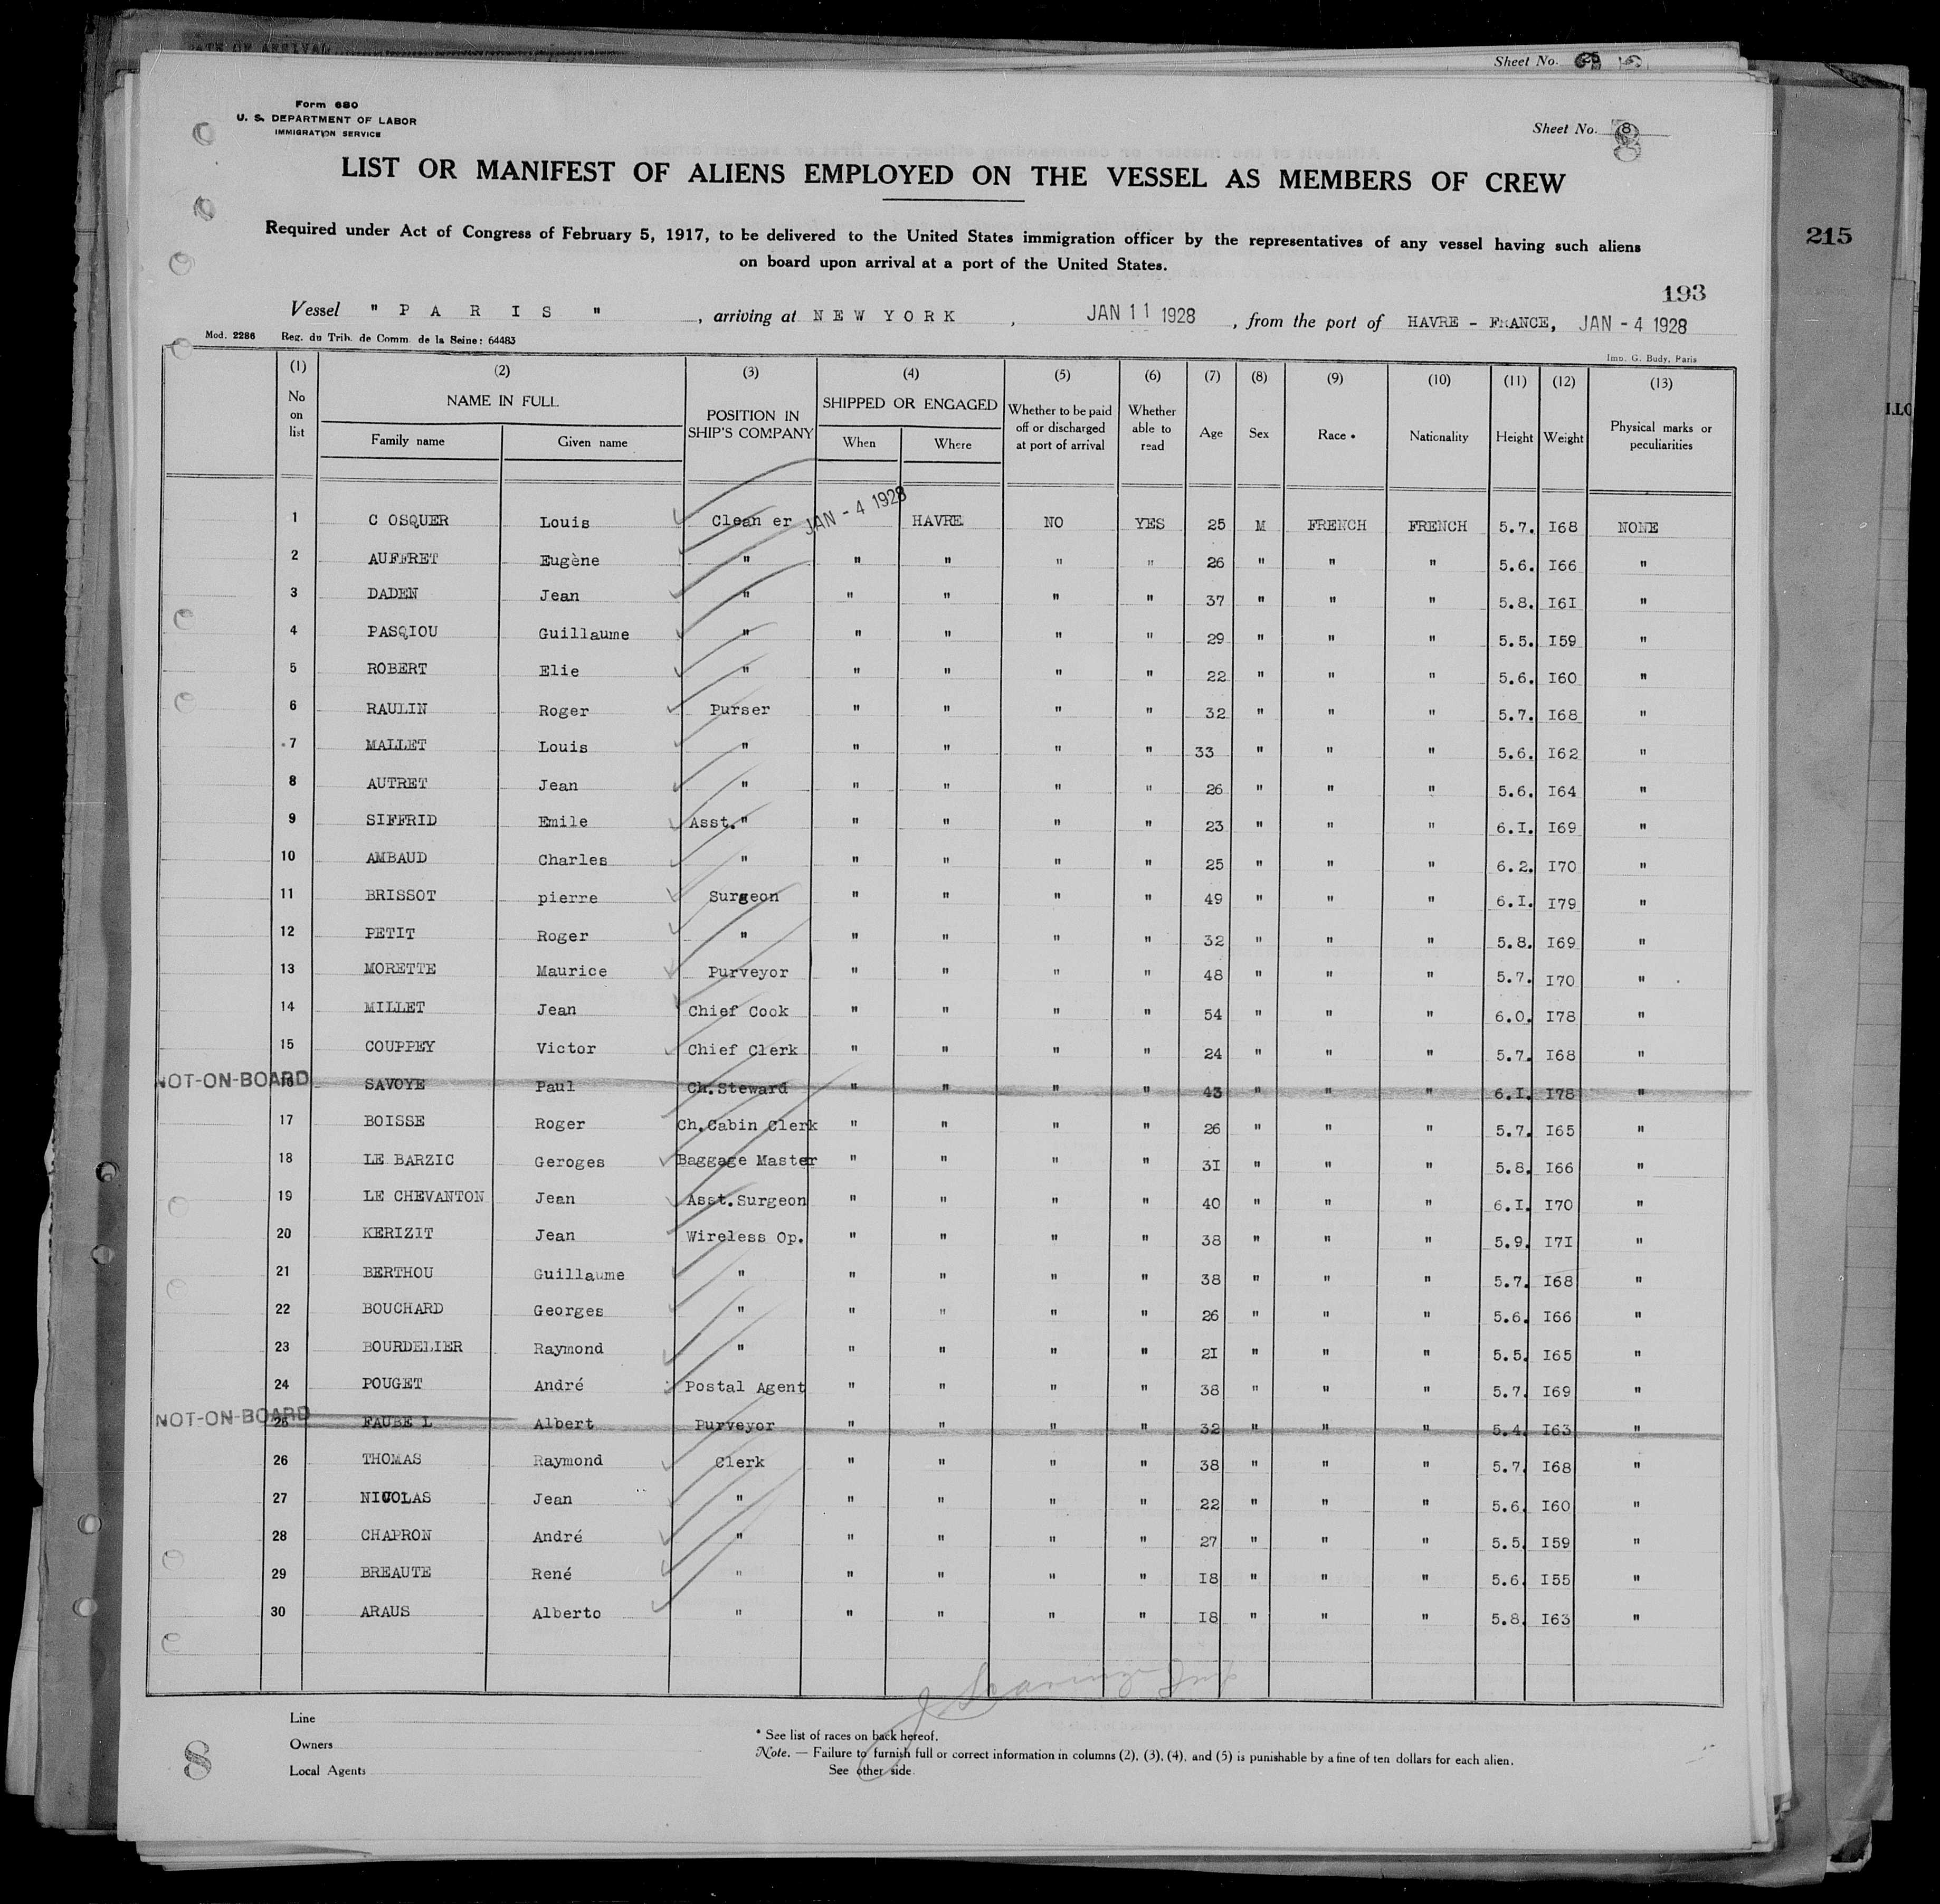 Sheet No.
Form 680
U. S. DEPARTMENT OF LABOR
IMMIGRATION SERVICE
Sheet No. 8
LIST OR MANIFEST OF ALIENS EMPLOYED ON THE VESSEL AS MEMBERS OF CREW
Required under Act of Congress of February 5, 1917, to be delivered to the United States immigration officer by the representatives of any vessel having such aliens
on board upon arrival at a port of the United States.
215
193
Vessel " P A R I S " , arriving at N E W Y O R K , JAN 11 1928 , from the port of HAVRE - FRANCE, JAN - 4 1928
Mod. 2286 Reg. du Trib. de Comm. de la Seine: 64483
Imp. G. Budy, Paris
(1) (2) (3) (4) (5) (6) (7) (8) (9) (10) (11) (12) (13)
No on list NAME IN FULL Family name Given name POSITION IN SHIP'S COMPANY SHIPPED OR ENGAGED When Where Whether to be paid off or discharged at port of arrival Whether able to read Age Sex Race * Nationality Height Weight Physical marks or peculiarities
1 C OSQUER Louis Clean er JAN - 4 1928 HAVRE NO YES 25 M FRENCH FRENCH 5.7. I68 NONE
2 AUFFRET Eugène " " " " " 26 " " " 5.6. I66 "
3 DADEN Jean " " " " " 37 " " " 5.8. I6I "
4 PASQIOU Guillaume " " " " " 29 " " " 5.5. I59 "
5 ROBERT Elie " " " " " 22 " " " 5.6. I60 "
6 RAULIN Roger Purser " " " " 32 " " " 5.7. I68 "
7 MALLET Louis " " " " " 33 " " " 5.6. I62 "
8 AUTRET Jean " " " " " 26 " " " 5.6. I64 "
9 SIFFRID Emile Asst." " " " " 23 " " " 6.I. I69 "
10 AMBAUD Charles " " " " " 25 " " " 6.2. I70 "
11 BRISSOT pierre Surgeon " " " " 49 " " " 6.I. I79 "
12 PETIT Roger " " " " " 32 " " " 5.8. I69 "
13 MORETTE Maurice Purveyor " " " " 48 " " " 5.7. I70 "
14 MILLET Jean Chief Cook " " " " 54 " " " 6.0. I78 "
15 COUPPEY Victor Chief Clerk " " " " 24 " " " 5.7. I68 "
NOT-ON-BOARD 16 SAVOYE Paul Ch.Steward " " " " 43 " " " 6.I. I78 "
17 BOISSE Roger Ch.Cabin Clerk " " " " 26 " " " 5.7. I65 "
18 LE BARZIC Geroges Baggage Master " " " " 3I " " " 5.8. I66 "
19 LE CHEVANTON Jean Asst.Surgeon " " " " 40 " " " 6.I. I70 "
20 KERIZIT Jean Wireless Op. " " " " 38 " " " 5.9. I7I "
21 BERTHOU Guillaume " " " " " 38 " " " 5.7. I68 "
22 BOUCHARD Georges " " " " " 26 " " " 5.6. I66 "
23 BOURDELIER Raymond " " " " " 2I " " " 5.5. I65 "
24 POUGET André Postal Agent " " " " 38 " " " 5.7. I69 "
NOT-ON-BOARD 25 FAUBE L Albert Purveyor " " " " 32 " " " 5.4. I63 "
26 THOMAS Raymond Clerk " " " " 38 " " " 5.7. I68 "
27 NICOLAS Jean " " " " " 22 " " " 5.6. I60 "
28 CHAPRON André " " " " " 27 " " " 5.5. I59 "
29 BREAUTE René " " " " " I8 " " " 5.6. I55 "
30 ARAUS Alberto " " " " " I8 " " " 5.8. I63 "
Line
Owners
Local Agents
8
* See list of races on back hereof.
Note. — Failure to furnish full or correct information in columns (2), (3), (4), and (5) is punishable by a fine of ten dollars for each alien.
See other side